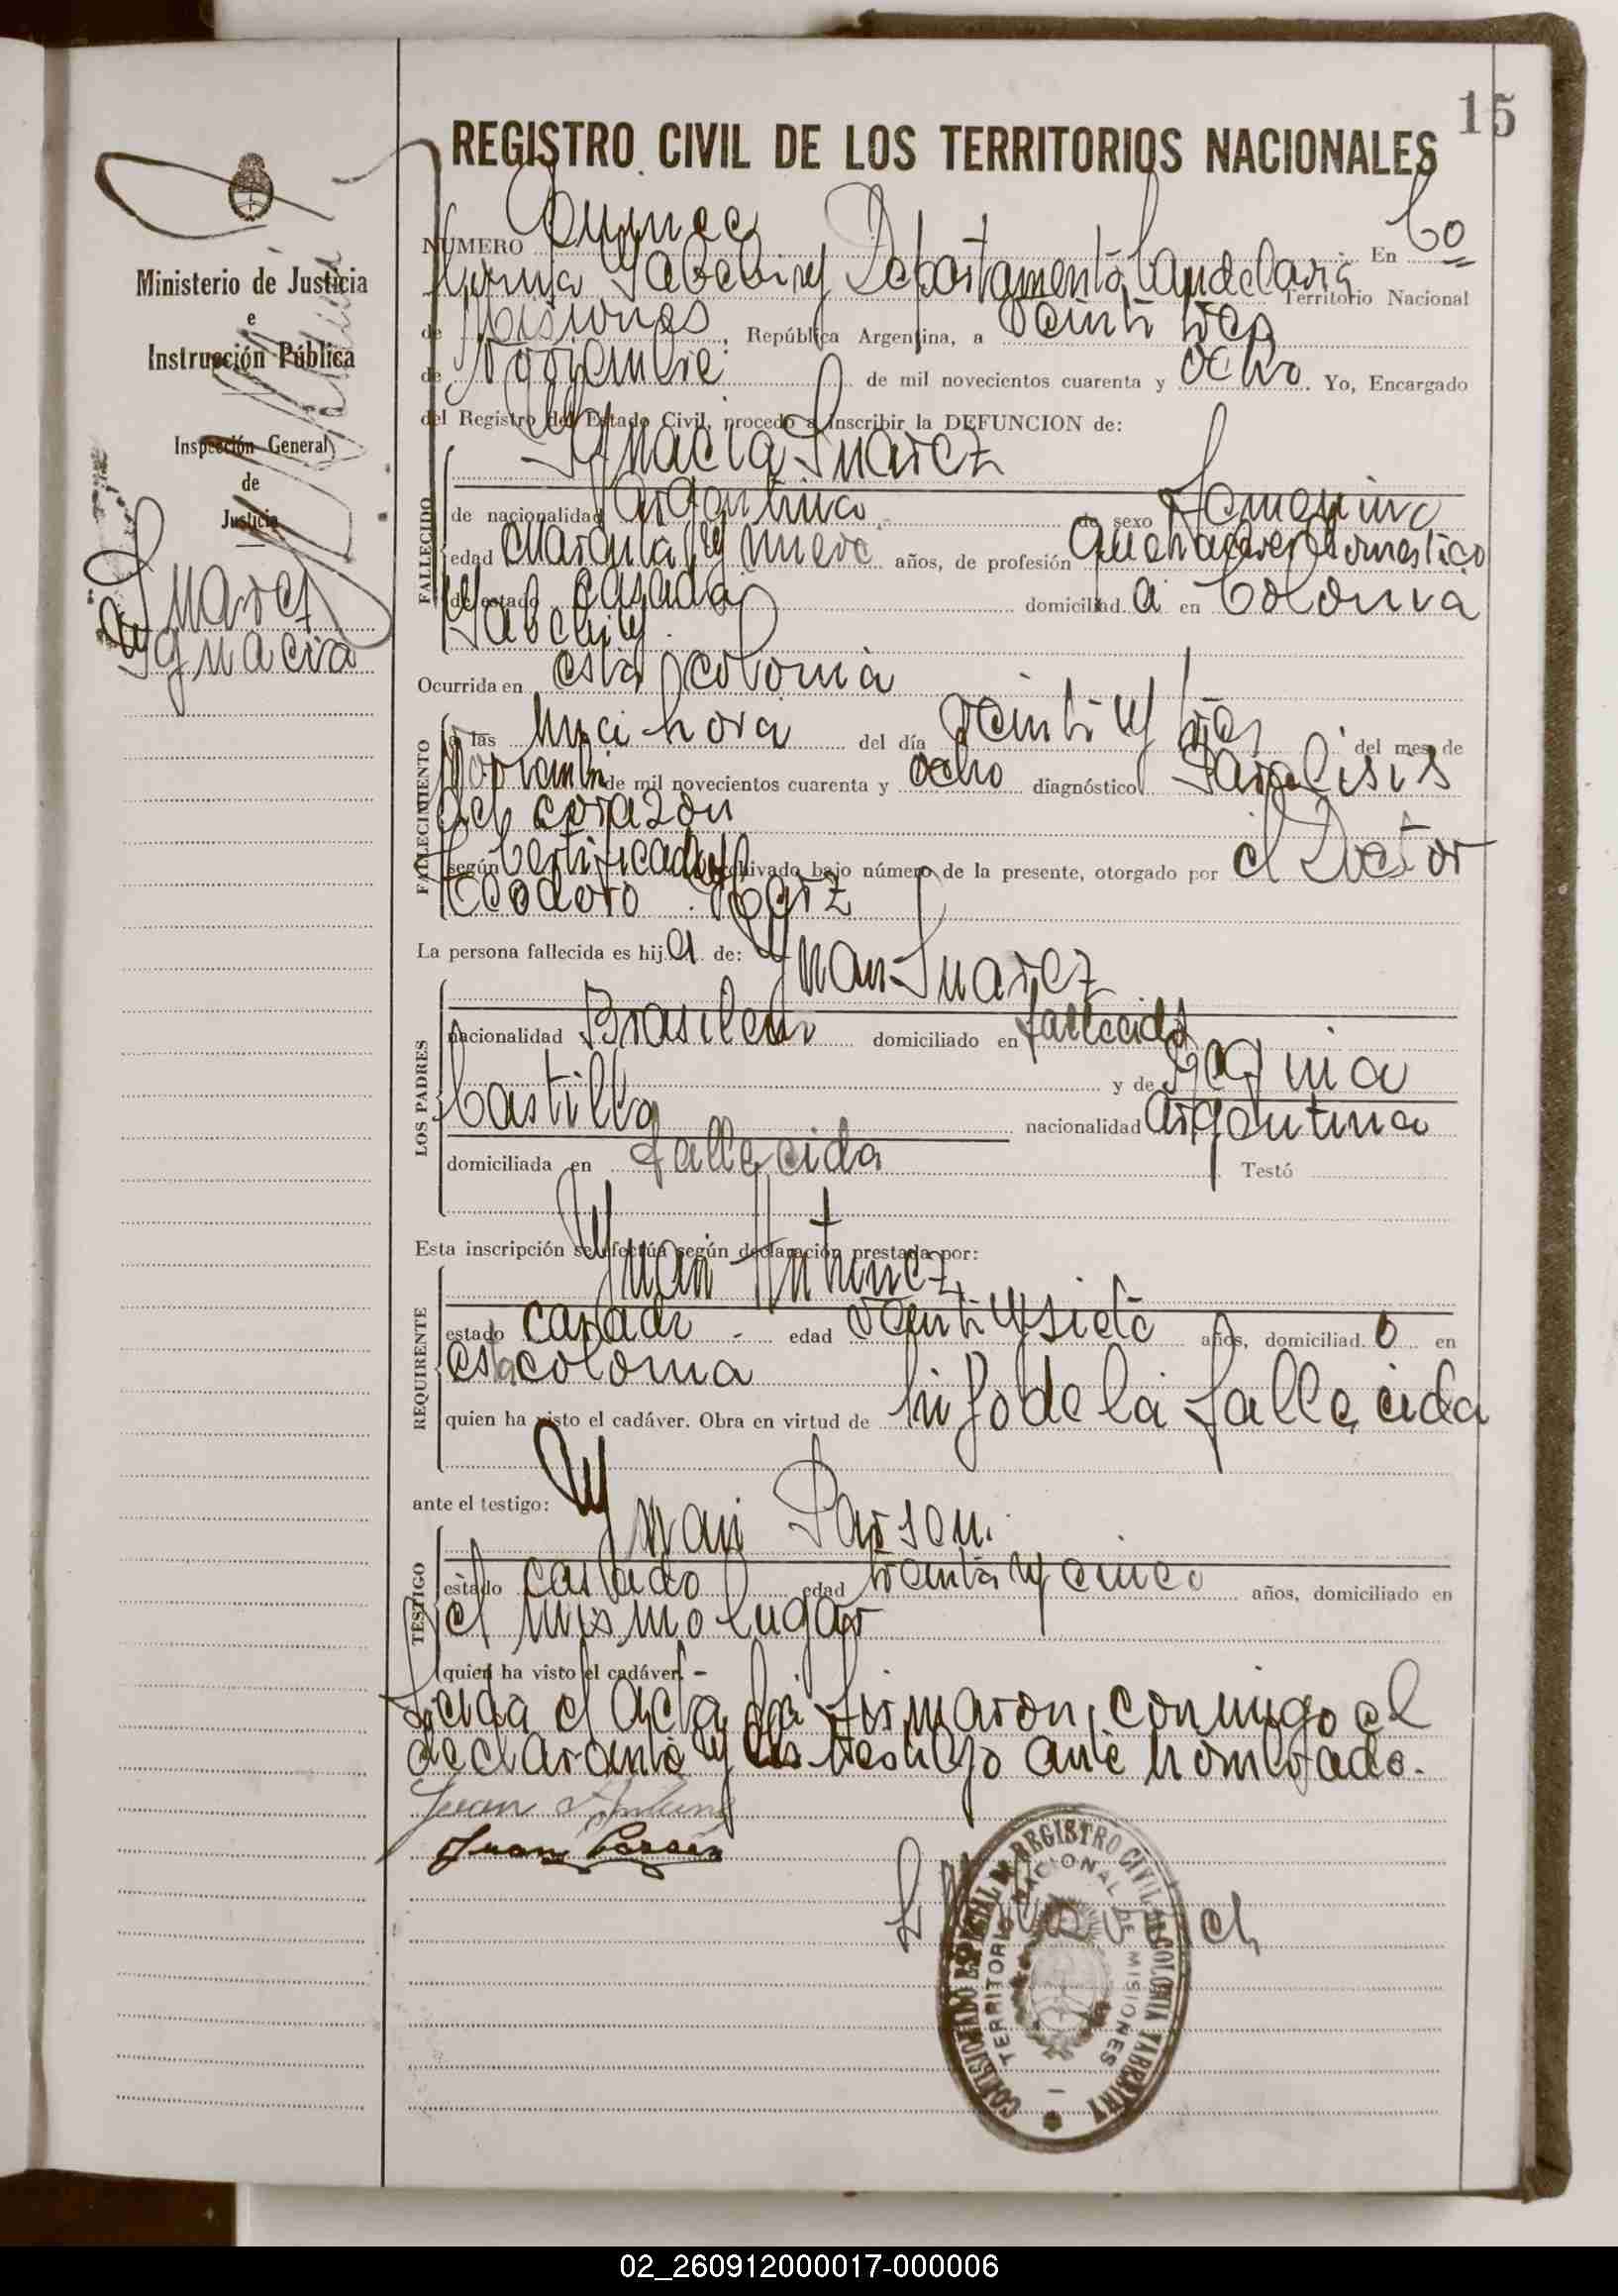 15
REGISTRO CIVIL DE LOS TERRITORIOS NACIONALES
Ministerio de Justicia
e
Instrucción Pública
Inspección General
de
Justicia
Suarez
Ygnacia
NUMERO Quince En Co
lonia Yabebiry Departamento Candelaria Territorio Nacional
de Misiones, República Argentina, a veinti tres
de Noviembre de mil novecientos cuarenta y ocho Yo, Encargado
del Registro del Estado Civil, procedo a inscribir la DEFUNCION de:
Ygnacia Suarez
FALLECIDO
de nacionalidad argentina de sexo Femenino
edad cuarenta y nueve años, de profesión quehaceres domestico
de estado casada domiciliad a en Colonia
Yabebiry
Ocurrida en esta colonia
FALLECIMIENTO
a las una hora del día veinti y tres del mes de
Noviembre de mil novecientos cuarenta y ocho diagnóstico Paralisis
del corazon
según Certificado archivado bajo número de la presente, otorgado por el Doctor
Teodoro
La persona fallecida es hij a de: Juan Suarez
LOS PADRES
nacionalidad Brasileño domiciliado en fallecido
y de
Castillo nacionalidad argentina
domiciliada en fallecida Testó
Esta inscripción se efectúa según declaración prestada por:
Juan Antunez
REQUIRENTE
estado casado edad veinti y siete años, domiciliad o en
esta colonia
quien ha visto el cadáver. Obra en virtud de hijo de la fallecida
ante el testigo: Juan Larsen
TESTIGO
estado casado edad treinta y cinco años, domiciliado en
el mismo lugar
quien ha visto el cadáver. -
Leida el acta la firmaron, conmigo el
declarante y el testigo ante nombrado.
Juan Antunez
Juan Larsen
COMISIONADO ESPECIAL DE REGISTRO CIVIL DE COLONIA YABEBIRY
TERRITORIO NACIONAL DE MISIONES
02_260912000017-000006